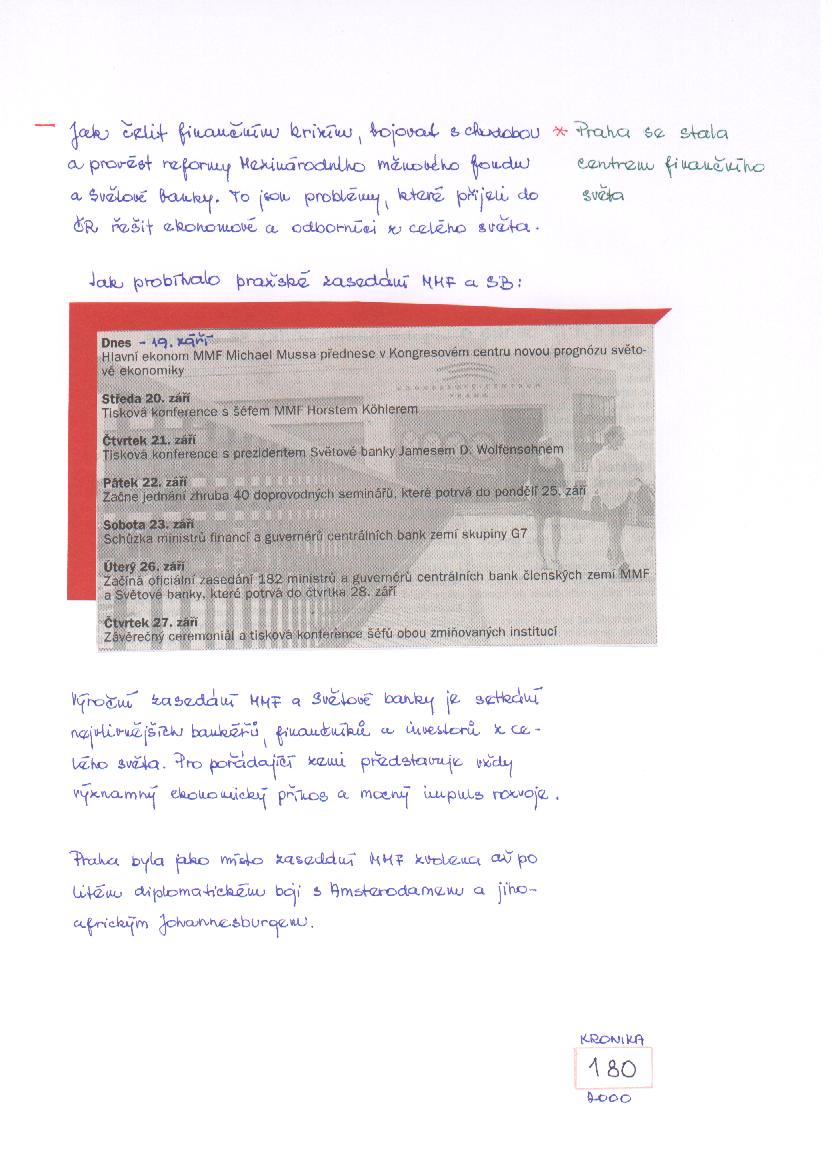 Jak čelit finančním krizím, bojovat s chudobou
a provést reformy Mezinárodního měnového fondu
a Světové banky. To jsou problémy, které přijeli do
ČR řešit ekonomové a odborníci z celého světa.
* Praha se stala
centrem finančního
světa
Jak probíhalo pražské zasedání MMF a SB:
Dnes - 19. září
Hlavní ekonom MMF Michael Mussa přednese v Kongresovém centru novou prognózu světo-
vé ekonomiky
Středa 20. září
Tisková konference s šéfem MMF Horstem Köhlerem
Čtvrtek 21. září
Tisková konference s prezidentem Světové banky Jamesem D. Wolfensohnem
Pátek 22. září
Začne jednání zhruba 40 doprovodných seminářů, které potrvá do pondělí 25. září
Sobota 23. září
Schůzka ministrů financí a guvernérů centrálních bank zemí skupiny G7
Úterý 26. září
Začíná oficiální zasedání 182 ministrů a guvernérů centrálních bank členských zemí MMF
a Světové banky, které potrvá do čtvrtka 28. září
Čtvrtek 27. září
Závěrečný ceremoniál a tisková konference šéfů obou zmiňovaných institucí
Výroční zasedání MMF a Světové banky je setkání
nejvlivnějších bankéřů, finančníků a investorů z ce-
lého světa. Pro pořádající zemi představuje vždy
významný ekonomický přínos a mocný impuls rozvoje.
Praha byla jako místo zasedání MMF zvolena až po
litém diplomatickém boji s Amsterodamem a jiho-
africkým Johannesburgem.
KRONIKA
180
2000